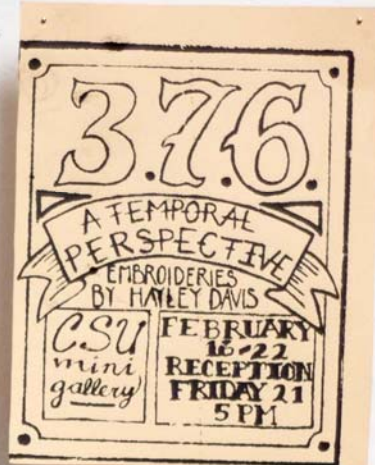 3.7.6.
A TEMPORAL
PERSPECTIVE
EMBROIDERIES
BY HAYLEY DAVIS
CSU
mini
gallery
FEBRUARY
16-22
RECEPTION
FRIDAY 21
5 PM